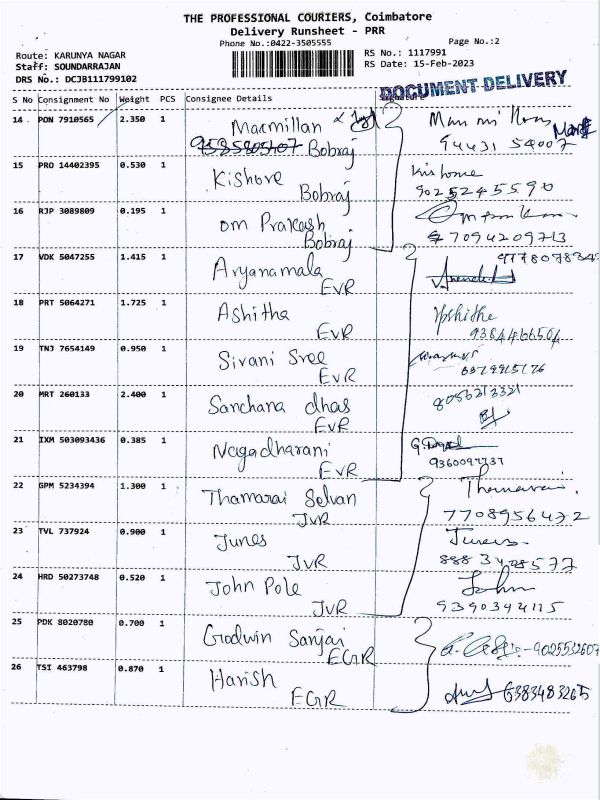 THE PROFESSIONAL COURIERS, Coimbatore
Delivery Runsheet - PRR
Phone No.:0422-3505555
Page No.:2
Route: KARUNYA NAGAR
RS No.: 1117991
Staff: SOUNDARRAJAN
RS Date: 15-Feb-2023
DRS No.: DCJB111799102
DOCUMENT DELIVERY
S No Consignment No Weight PCS Consignee Details Signature
14 . PON 7910565 2.350 1 Macmillan
94431 54007
Bobraj
15 PRO 14402395 0.530 1 Kishore
Bobraj 9025245590
16 RJP 3089809 0.195 1 Om Prakash
Bobraj 7094209713
17 VDK 5047255 1.415 1 Aryanamala
EVR
18 PRT 5064271 1.725 1 Ashitha
EVR
19 TNJ 7654149 0.950 1 Sivani Sree
EVR
20 MRT 260133 2.400 1 Sanchana dhas 8056213321
EVR
21 IXM 503093436 0.385 1 Nagadharani
EVR 9360097737
22 GPM 5234394 1.300 1 Thamarai Selvan
JVR 7708956472
23 TVL 737924 0.900 1 Junes
JVR
24 HRD 50273748 0.520 1 John Pole John
JVR
25 PDK 8020780 0.700 1 Godwin Sanjai
EGR
26 TSI 463798 0.870 1 Harish 6383483265
EGR